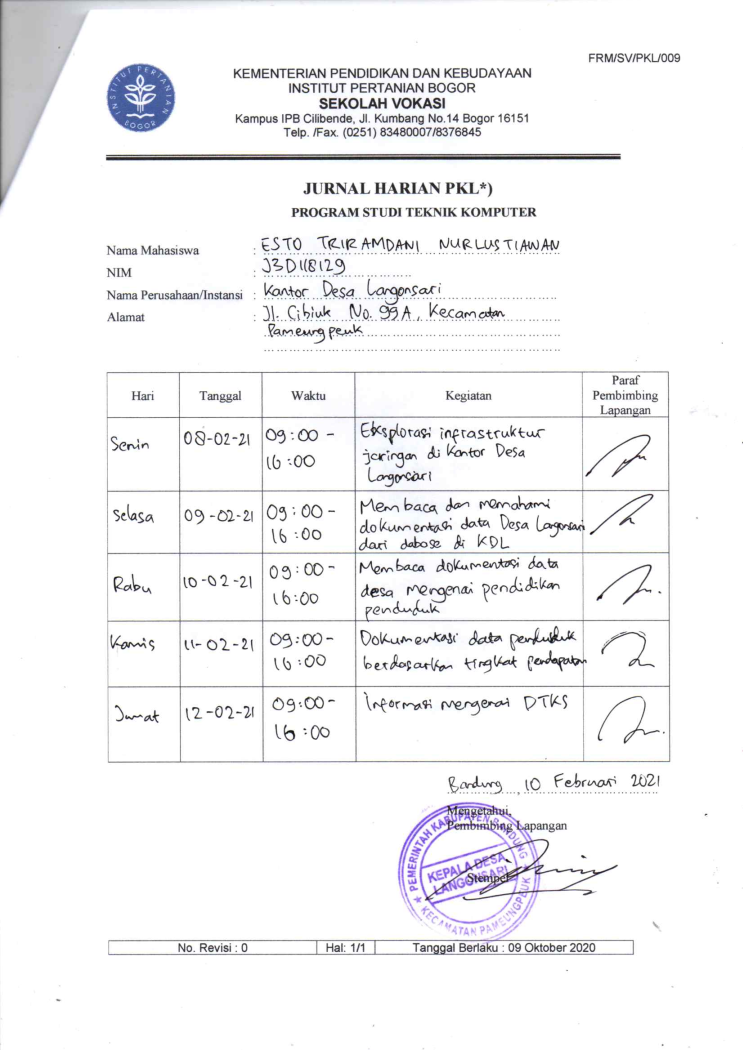 FRM/SV/PKL/009
INSTITUT PERTANIAN
BOGOR
KEMENTERIAN PENDIDIKAN DAN KEBUDAYAAN
INSTITUT PERTANIAN BOGOR
SEKOLAH VOKASI
Kampus IPB Cilibende, Jl. Kumbang No.14 Bogor 16151
Telp. /Fax. (0251) 83480007/8376845
JURNAL HARIAN PKL*)
PROGRAM STUDI TEKNIK KOMPUTER
Nama Mahasiswa : ESTO TRIRAMDANI NURLUSTIAWAN
NIM : J3D118129
Nama Perusahaan/Instansi : Kantor Desa Langonsari
Alamat : Jl. Cibiuk No. 99A, Kecamatan
Pameungpeuk
Hari Tanggal Waktu Kegiatan Paraf
Pembimbing
Lapangan
Senin 08-02-21 09:00 - Eksplorasi infrastruktur
16:00 jaringan di Kantor Desa
Langonsari
Selasa 09-02-21 09:00 - Membaca dan memahami
16:00 dokumentasi data Desa Langonsari
dari dabase di KDL
Rabu 10-02-21 09:00 - Membaca dokumentasi data
16:00 desa mengenai pendidikan
penduduk
Kamis 11-02-21 09:00 - Dokumentasi data penduduk
16:00 berdasarkan tingkat pendapatan
Jumat 12-02-21 09:00 - Informasi mengenai DTKS
16:00
Bandung, 10 Februari 2021
Mengetahui,
Pembimbing Lapangan
Stempel
PEMERINTAH KABUPATEN BANDUNG
KEPALA DESA
LANGONSARI
KECAMATAN PAMEUNGPEUK
No. Revisi : 0 Hal: 1/1 Tanggal Berlaku : 09 Oktober 2020